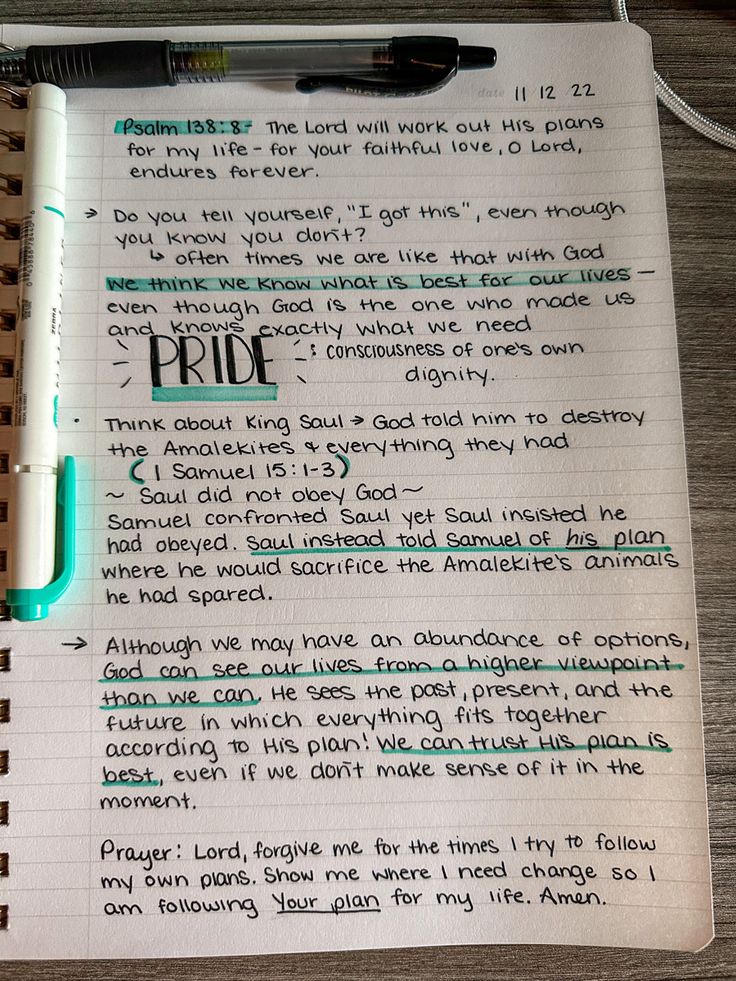 date 11 12 22
Psalm 138:8- The Lord will work out His plans
for my life - for your faithful love, O Lord,
endures forever.
→ Do you tell yourself, "I got this", even though
you know you don't?
↳ often times we are like that with God
we think we know what is best for our lives —
even though God is the one who made us
and knows exactly what we need
PRIDE : consciousness of one's own
dignity.
• Think about King Saul → God told him to destroy
the Amalekites & everything they had
(1 Samuel 15:1-3)
~ Saul did not obey God ~
Samuel confronted Saul yet Saul insisted he
had obeyed. Saul instead told Samuel of his plan
where he would sacrifice the Amalekite's animals
he had spared.
→ Although we may have an abundance of options,
God can see our lives from a higher viewpoint
than we can. He sees the past, present, and the
future in which everything fits together
according to His plan! We can trust His plan is
best, even if we don't make sense of it in the
moment.
Prayer: Lord, forgive me for the times I try to follow
my own plans. Show me where I need change so I
am following Your plan for my life. Amen.
ZEBRA